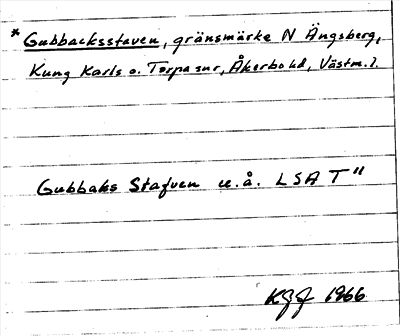 * Gubbacksstaven, gränsmärke N Ängsberg,
Kung Karls o. Torpa snr, Åkerbo hd, Västm. l.
Gubbaks Stafven u.å. LSA T"
KGJ 1966